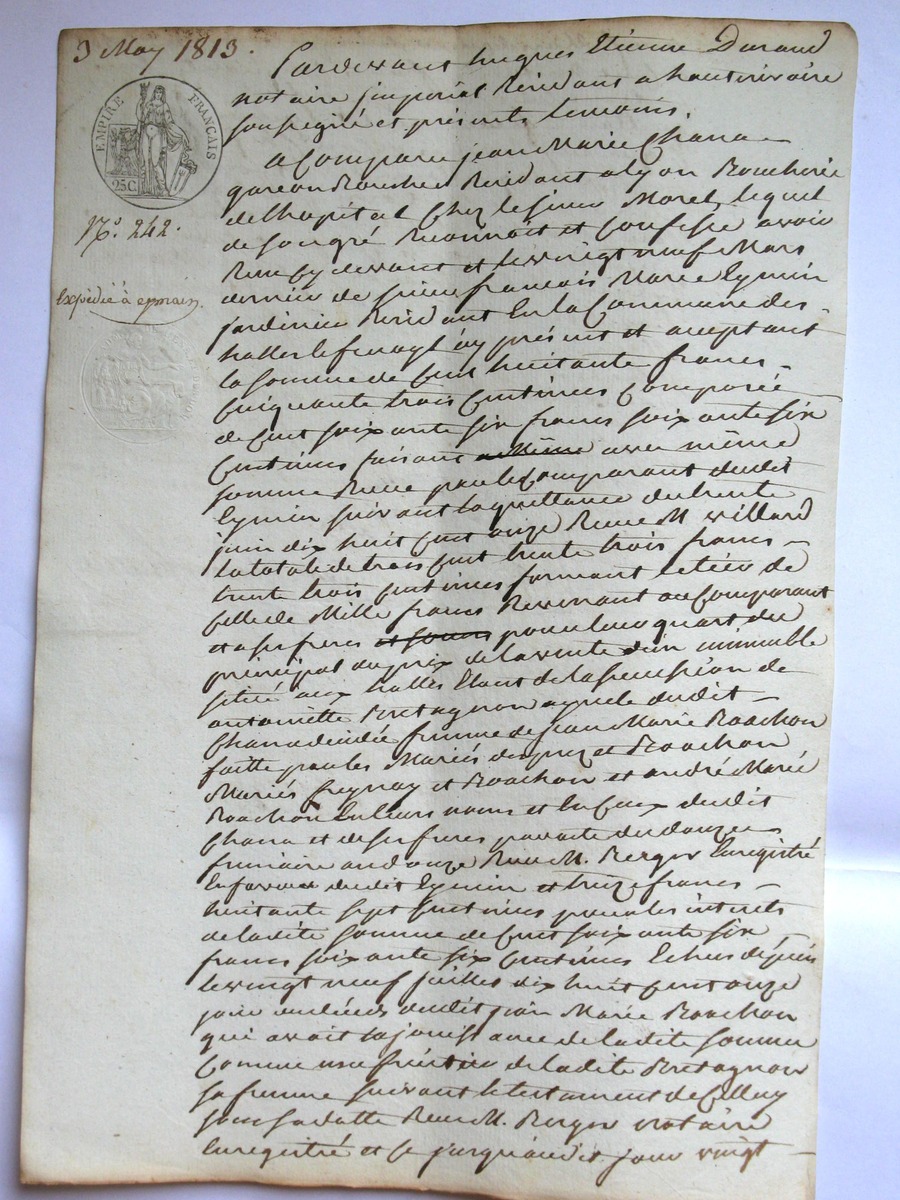 3 May 1813.
EMPIRE FRANÇAIS
25 C.
N.º 242.
Expédié à
Pardevant hugues Etienne Durand
notaire jmpérial Residant a hauterivoire
soussigné et présents temoins.
a Comparu jean Marie Chana
garcon Boucher Residant a lyon Boucherie
de lhopital Chez le sieur Morel, lequel
de son gré Reconnoit et Confesse avoir
Recu Cy devant et le vingt neuf Mars
dernier de sieur francois Marie Eymin
jardinier Residant En la Commune des
halles le fenoyl cy présent et acceptant
la somme de Cent huitante francs
Cinquante trois Centimes Composée
de Cent soixante six francs soixante six
Centimes faisant avec même
somme Recue par le Comparant dudit
Eymin suivant la quittance du trente
juin dix huit Cent onze Recue M. Villard
la totale de trois Cent trente trois francs
trente trois Centimes formant le tiers de
Celle de Mille francs Revenant au Comparant
et a ses freres et soeurs pour leur quart du
principal du prix de la vente d'un immeuble
situé aux halles Etant de la succession de
antoinette Bretagnon ayeule dudit
Chana décédée femme de jean Marie Boachon
faitte par les Mariés et Boachon
Mariés et Boachon et andré Marie
Boachon En leurs noms et En Ceux dudit
Chana et de ses freres par acte du douze
frimaire an douze Recu M. Berger Enregistré
En faveur dudit Eymin et treize francs
huitante sept Centimes pour les interets
de ladite somme de Cent soixante six
francs soixante six Centimes Echus depuis
le vingt neuf juillet dix huit Cent onze
jour du décès dudit jean Marie Boachon
qui avait la jouissance de ladite somme
Comme usufruitier de ladite Bretagnon
sa femme suivant le testament de Celle cy
sous sa datte Recu M. Berger notaire
Enregistré et Ce jusqu'audit jour vingt